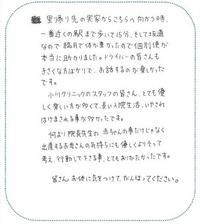 里帰り先の実家からこちらへ向かう時、
一番近くの駅まで歩いて15分、そして坂道
なので臨月で体が重かったので個別便が
本当に助かりました。ドライバーの皆さんも
きさくな方ばかりで、お話するのが楽しかった
です。
小川クリニックのスタッフの皆さん、とても優
しく楽しい方が多くて、長い入院生活、いやされ
はげまされる事が多かったです。
何より院長先生の、赤ちゃんの事だけじゃなく
出産するお母さんの気持ちにも優しくよりそって
考え、行動して下さる事、とてもありがたかったです。
皆さんお体に気をつけて、がんばってください。